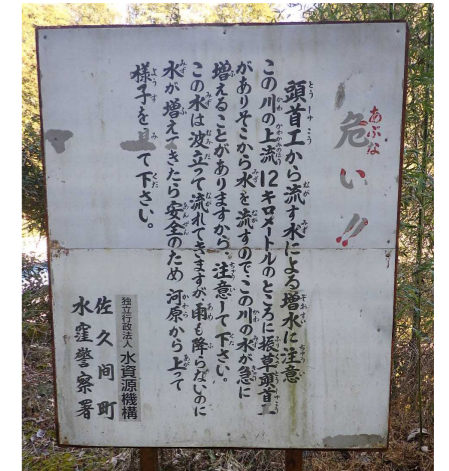 危い!!
あぶな
頭首工から流す水による増水に注意
この川の上流12キロメートルのところに振草頭首工
がありそこから水を流すので、この川の水が急に
増えることがありますから、注意して下さい。
この水は波立って流れてきますが、雨も降らないのに
水が増えてきたら安全のため 河原から上って
様子を見て下さい。
独立行政法人 水資源機構
佐久間町
水窪警察署